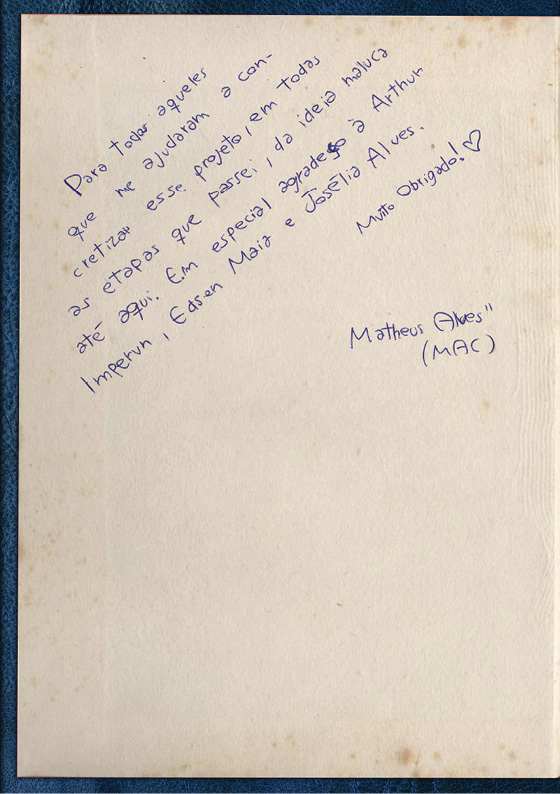 Para todos aqueles
que me ajudaram a con-
cretizar esse projeto, em todas
as etapas que passei, da ideia maluca
até aqui. Em especial agradeço à Arthur
Imperun, Edsen Maia e Josélia Alves.
Muito Obrigado! ♡
Matheus Alves"
(MAC)